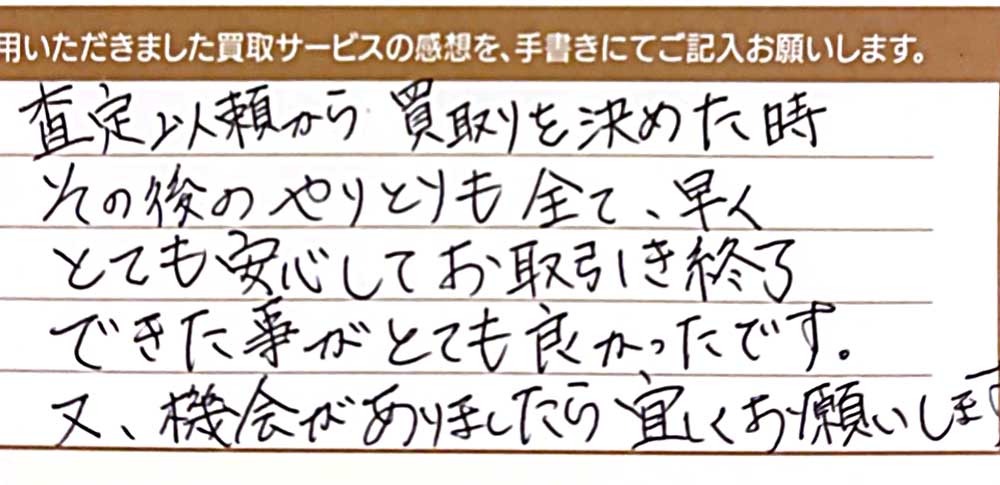 用いただきました買取サービスの感想を、手書きにてご記入お願いします。
査定以頼から 買取りを決めた時
その後のやりとりも全て、早く
とても安心してお取引き終了
できた事がとても良かったです。
又、機会がありましたら宜しくお願いします